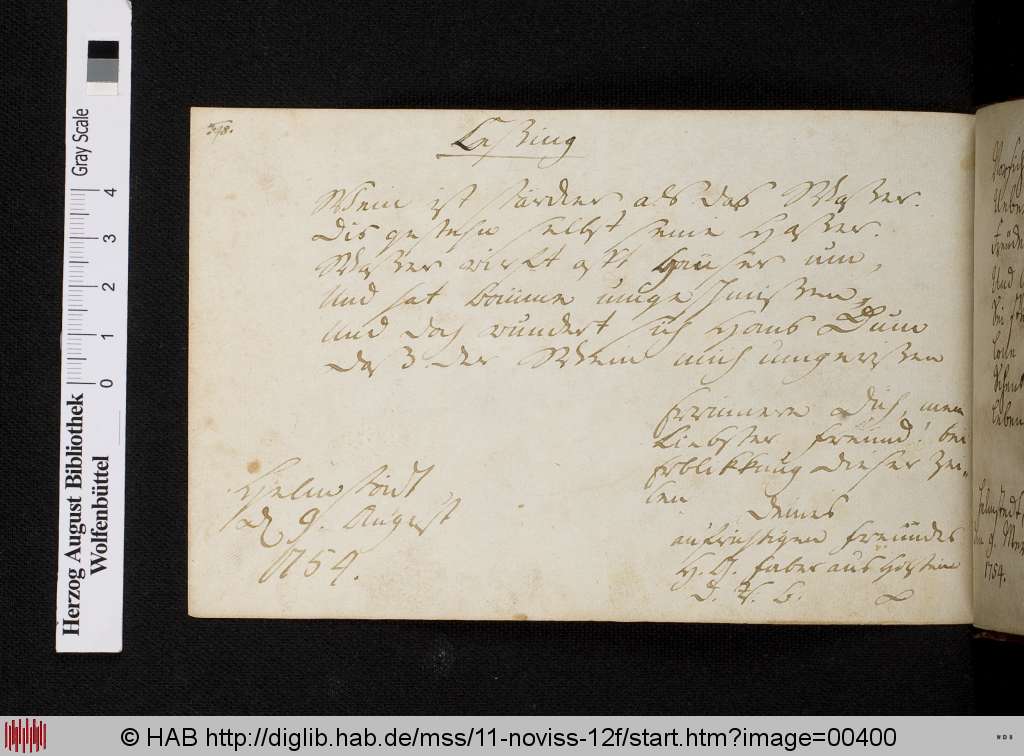 398.
Leßing
Wein ist stärcker als das Waßer.
Dis gestehn selbst seine Haßer.
Waßer reißt oft Häuser um,
Und hat Bäume umge
Und doch wundert sich Hans Dum
Daß der Wein mich umgerißen
Erinnere Dich, mein
Liebster Freund! bei
Erblikkung dieser Zei-
len
Deines
aufrichtigen Freundes
Faber aus Holstein
D. G. B.
Helmstädt
d 9. August
1754.
Helmstedt
1754.
Herzog August Bibliothek
Wolfenbüttel
Gray Scale
0 1 2 3 4
© HAB http://diglib.hab.de/mss/11-noviss-12f/start.htm?image=00400